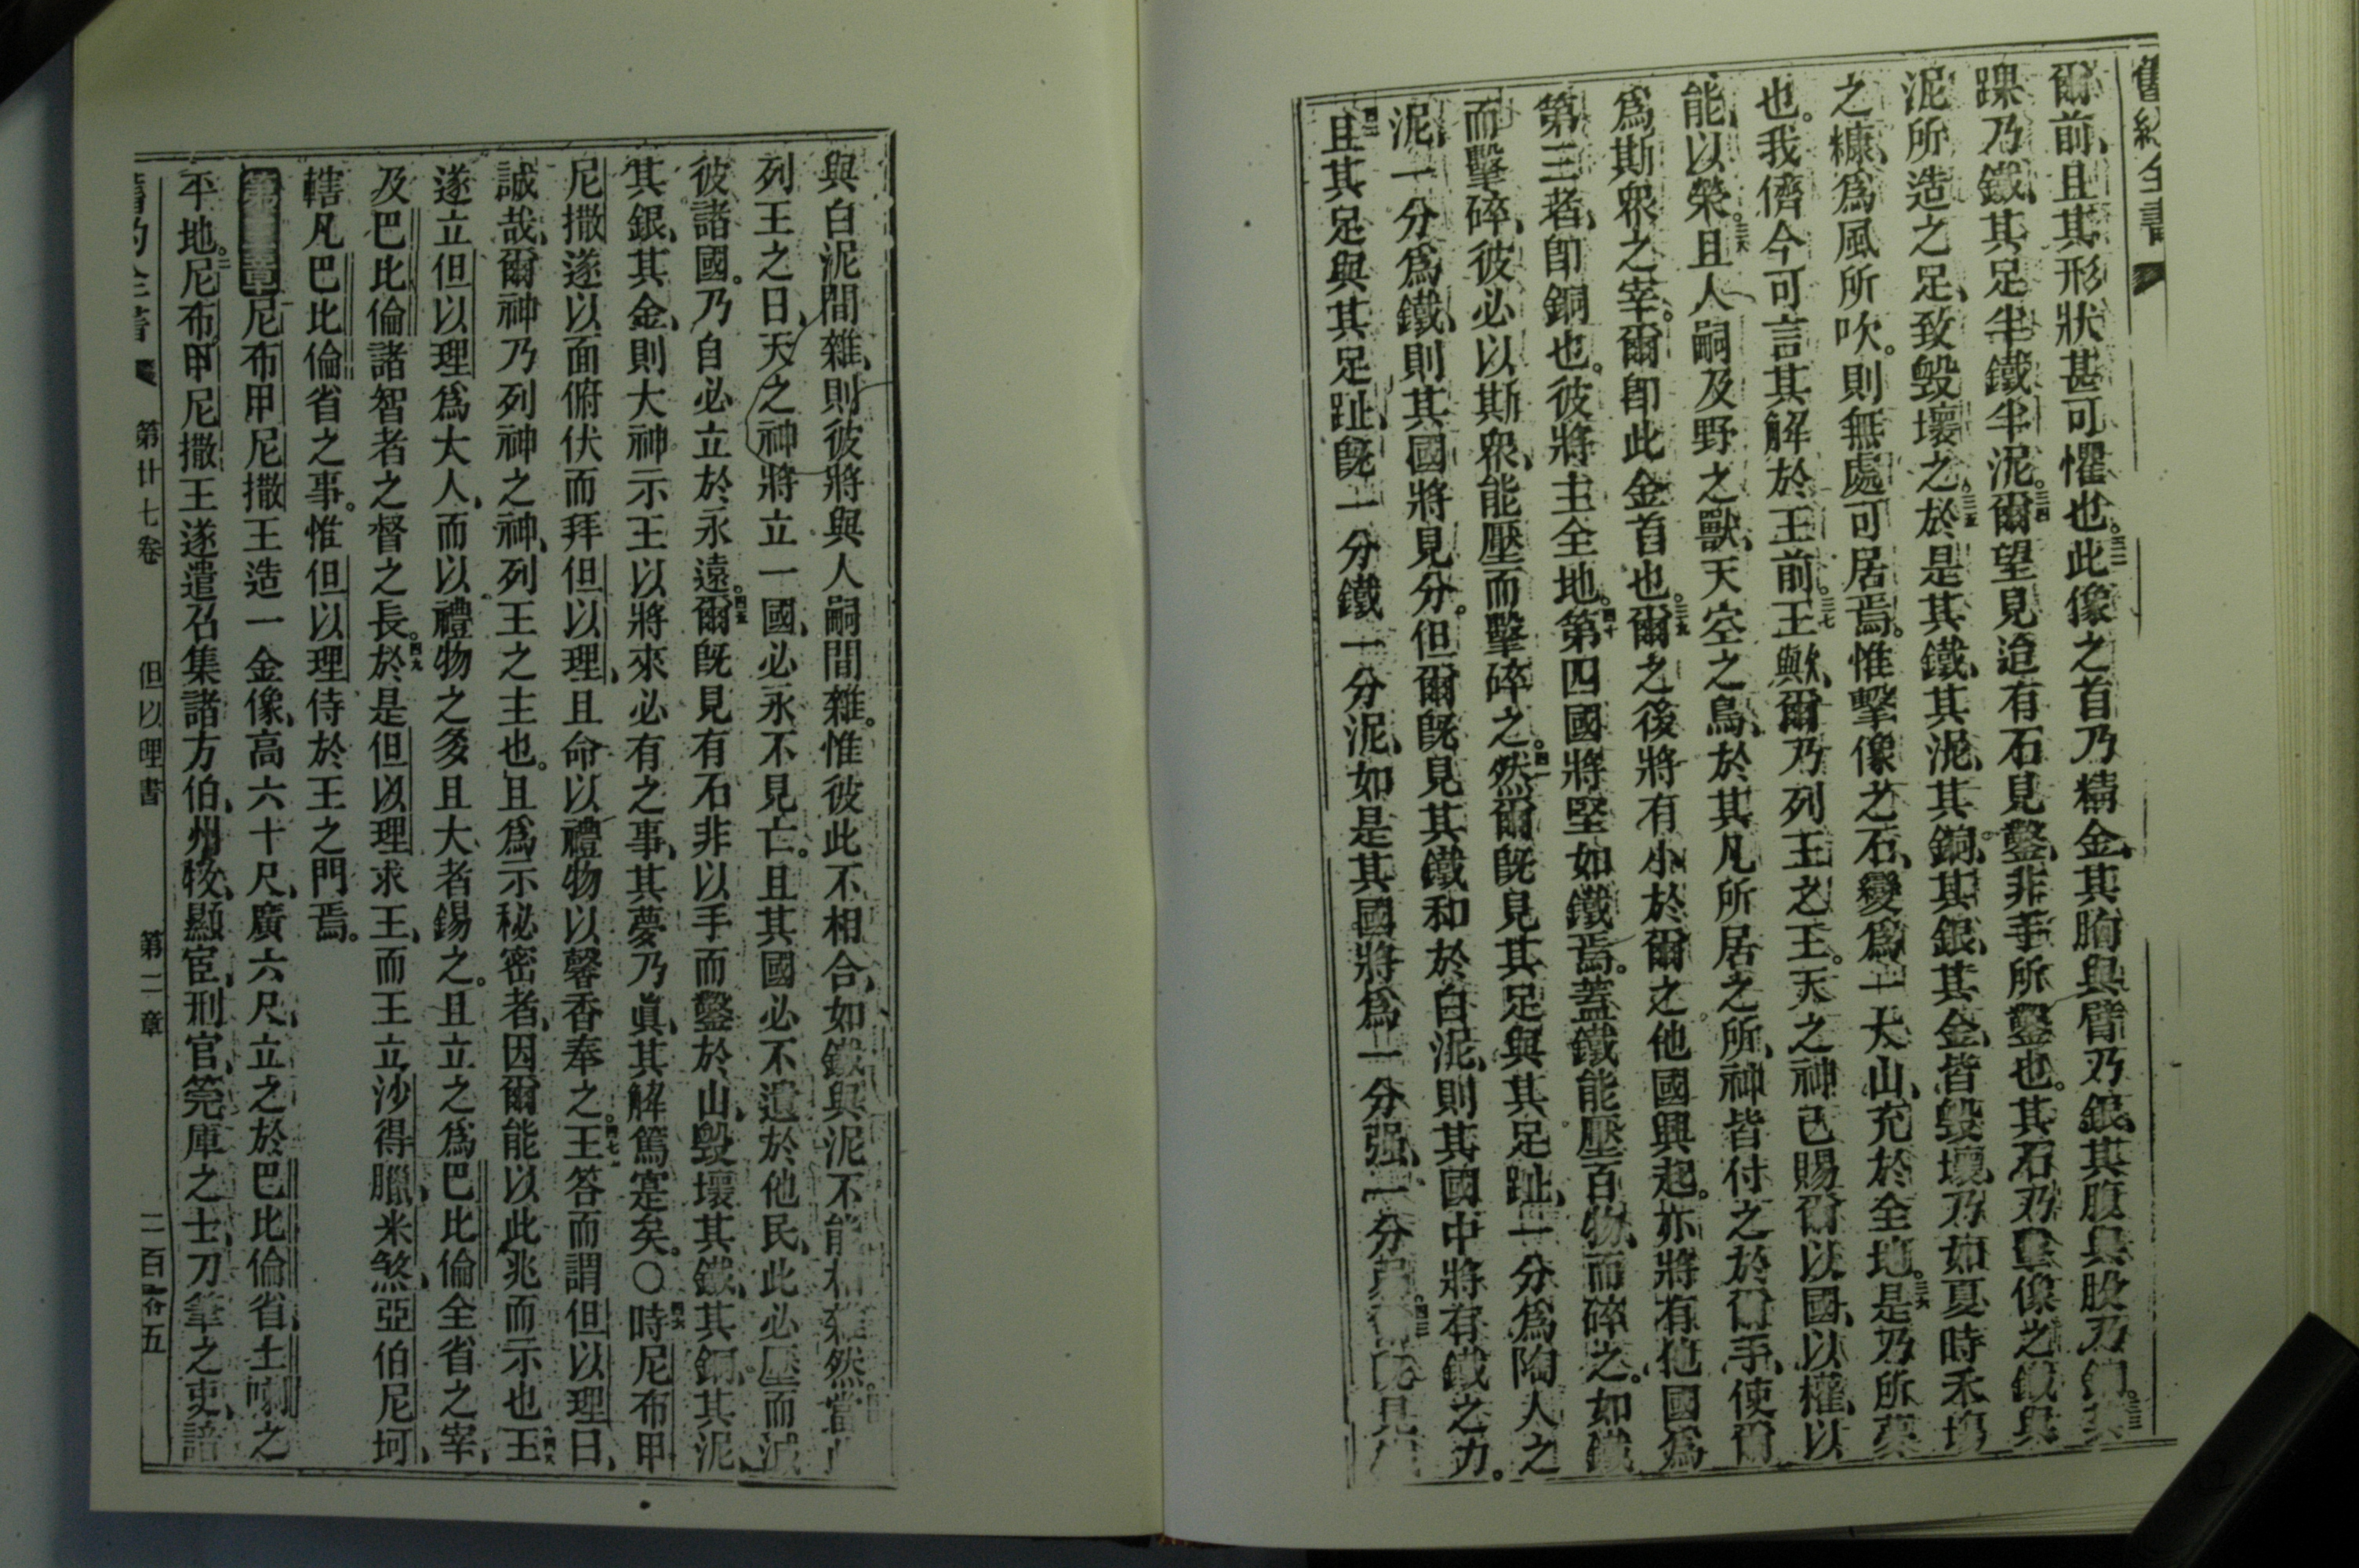 舊約全書
爾前、且其形狀甚可懼也。三二此像之首乃精金、其胸與臂乃銀、其腹與股乃銅。三三其
踝乃鐵、其足半鐵半泥。三四爾望見迨有石見鑿、非手所鑿也。其石乃擊像之鐵與
泥所造之足、致毀壞之。三五於是其鐵、其泥、其銅、其銀、其金、皆毀壞、乃如夏時禾塲
之糠、爲風所吹。則無處可居焉。惟擊像之石、變爲一大山、充於全地。三六是乃所夢
也。我儕今可言其解於王前。三七王歟、爾乃列王之王。天之神已賜爾以國、以權、以
能、以榮。三八且人嗣及野之獸、天空之鳥、於其凡所居之所、神皆付之於爾手、使爾
爲斯衆之宰。爾卽此金首也。三九爾之後將有小於爾之他國興起。亦將有他國爲
第三者、卽銅也。彼將主全地。四十第四國將堅如鐵焉。蓋鐵能壓百物、而碎之。如鐵
而擊碎、彼必以斯衆、能壓而擊碎之。四一然爾旣見其足與其足趾、一分爲陶人之
泥、一分爲鐵、則其國將見分。但爾旣見其鐵和於白泥、則其國中將有鐵之力。
四二且其足與其足趾、旣一分鐵一分泥、如是其國將爲一分强、一分弱。四三爾旣見
與白泥間雜、則彼將與人嗣間雜。惟彼此不相合、如鐵與泥不能相雜然。當
列王之日、天之神將立一國、必永不見亡。且其國必不遺於他民、此必壓而滅
彼諸國。乃自必立於永遠。四五爾旣見有石非以手而鑿於山、毀壞其鐵、其銅、其泥、
其銀、其金、則大神示王以將來必有之事、其夢乃眞、其解篤寔矣。○四六時尼布甲
尼撒遂以面俯伏而拜但以理、且命以禮物以馨香奉之。四七王答而謂但以理曰、
誠哉、爾神乃列神之神、列王之主也。且爲示秘密者、因爾能以此兆而示也、四八王
遂立但以理爲大人、而以禮物之多且大者錫之。且立之爲巴比倫全省之宰、
及巴比倫諸智者之督之長。四九於是但以理求王、而王立沙得臘、米煞、亞伯尼坷、
轄凡巴比倫省之事。惟但以理侍於王之門焉。
第三章尼布甲尼撒王造一金像、高六十尺、廣六尺、立之於巴比倫省、土喇之
平地。二尼布甲尼撒王遂遣召集諸方伯、州牧、顯宦、刑官、筦庫之士、刀筆之吏、諳
舊約全書　第廿七卷　但以理書　第二章　一百拾五